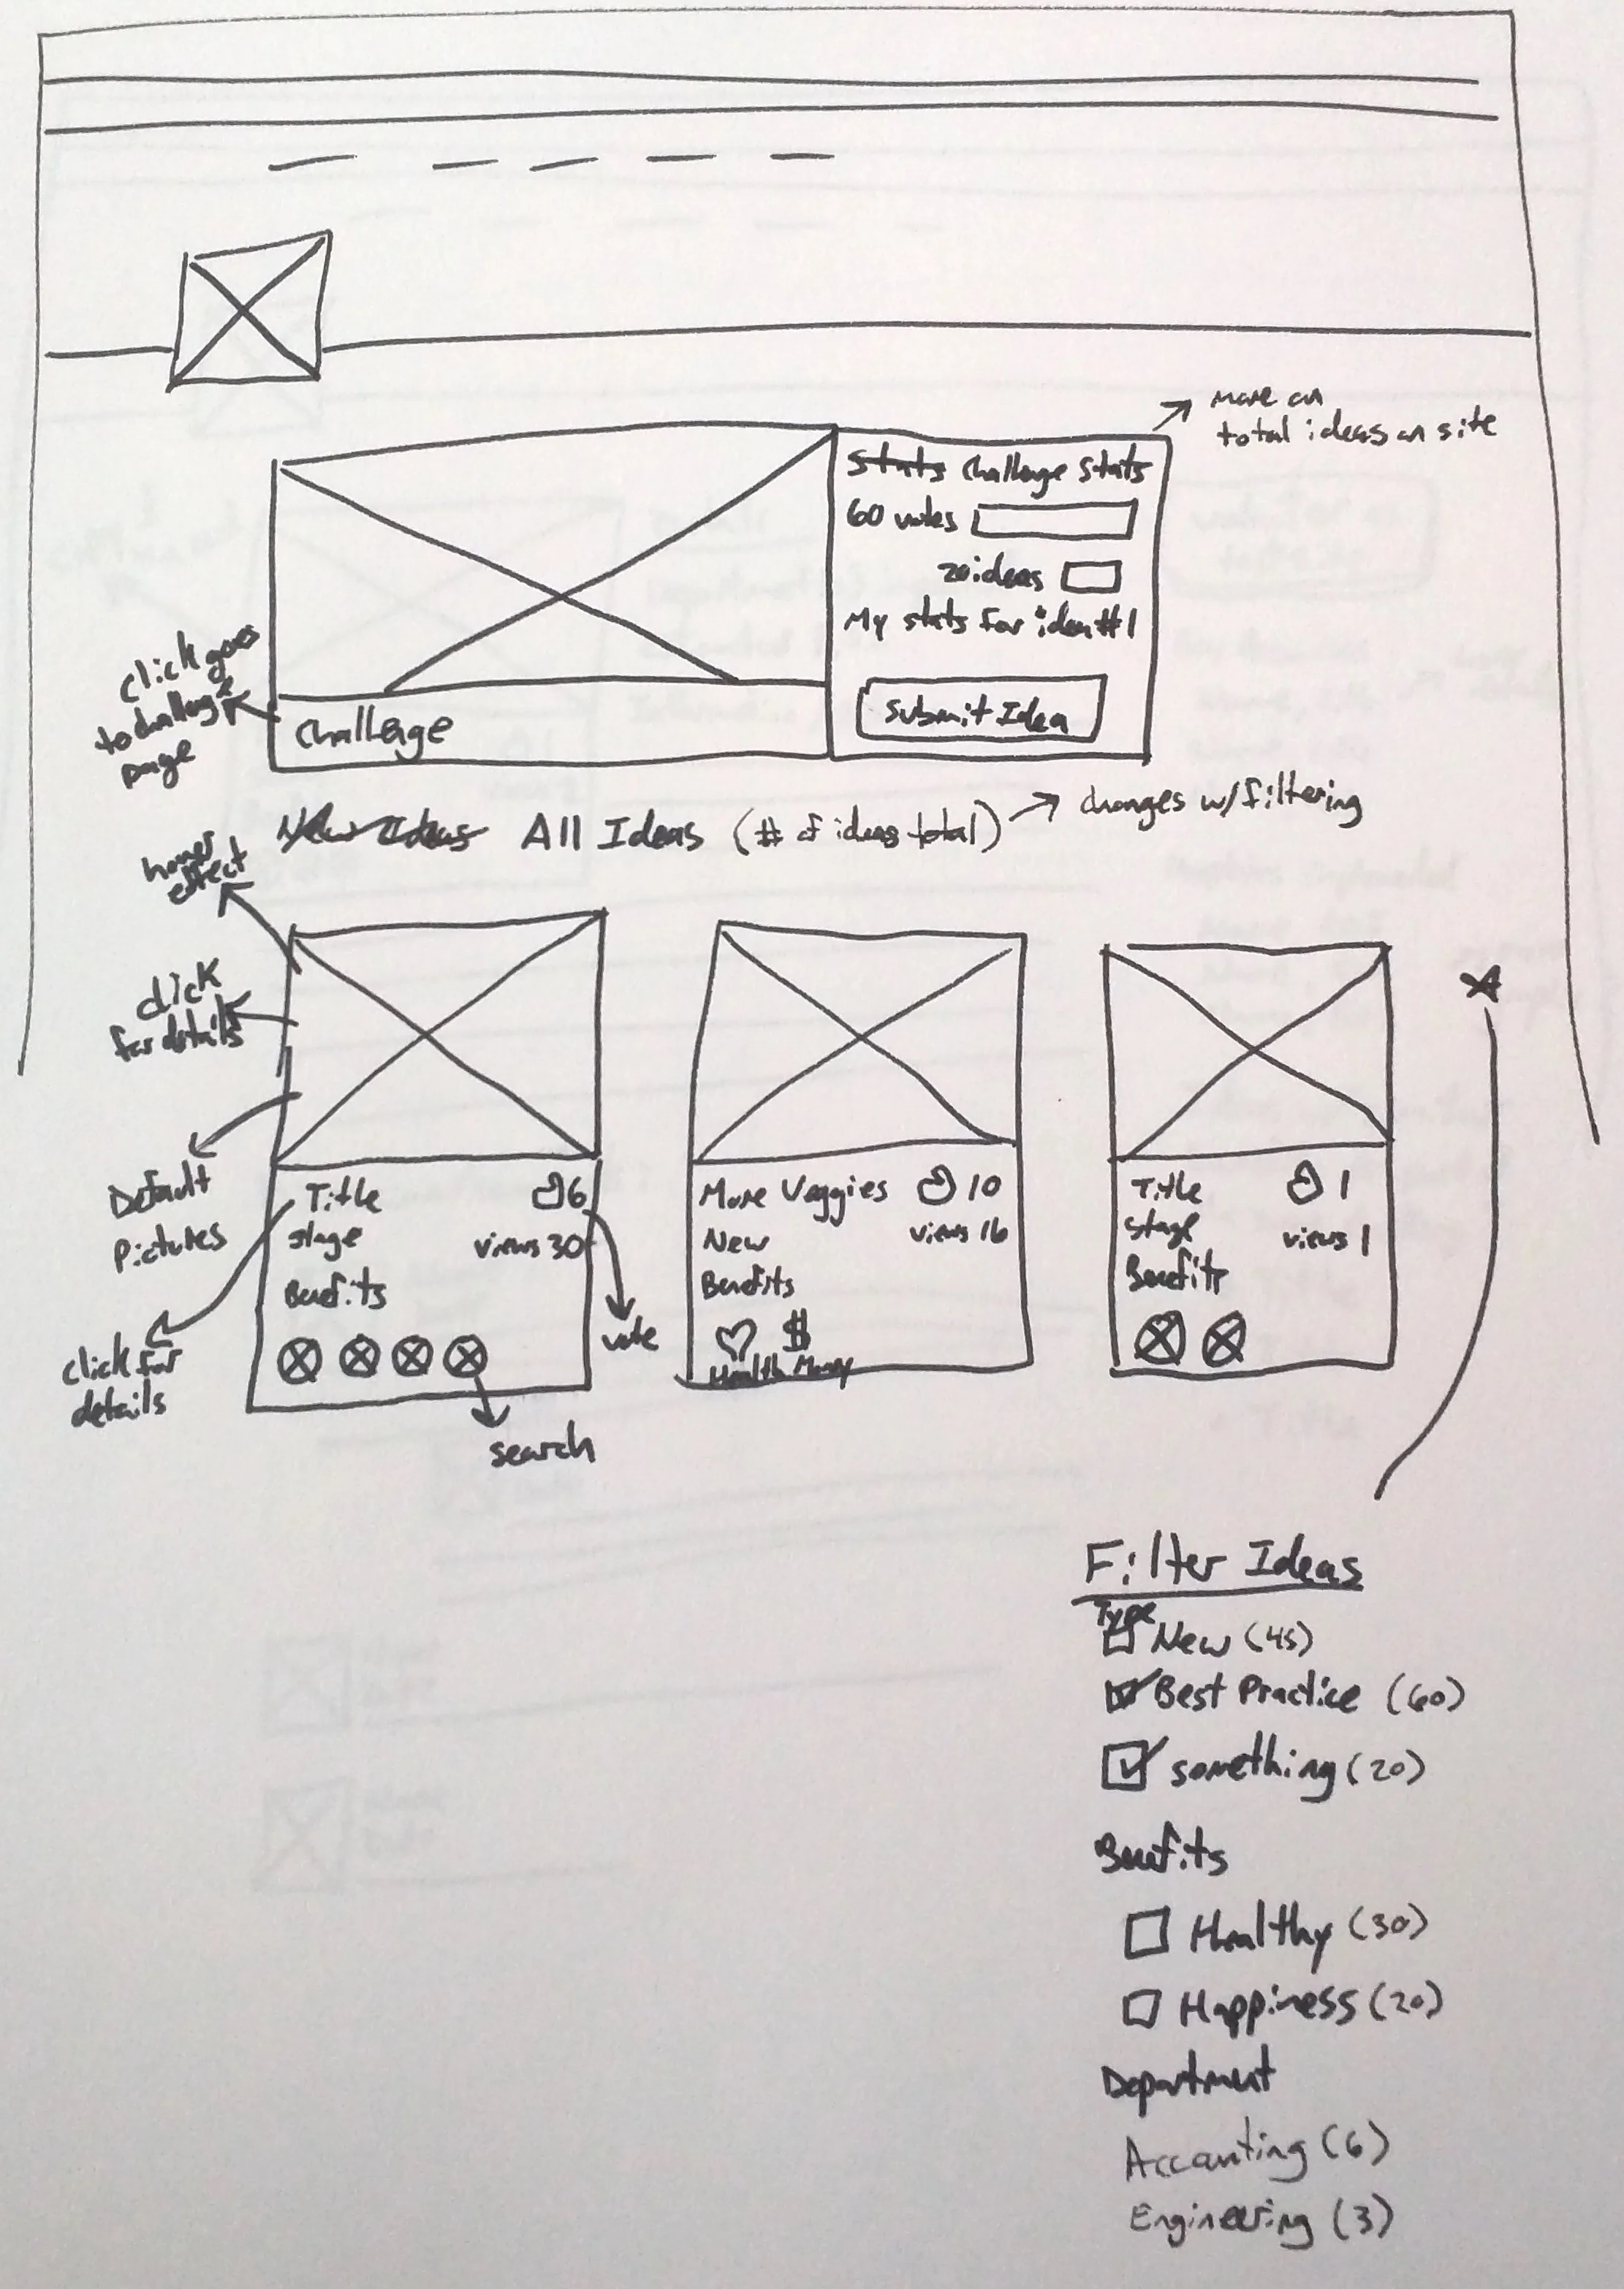 more on
total ideas on site
Stats Challenge Stats
60 votes
20 ideas
My stats for idea #1
Submit Idea
Click goes
to challenge
page
Challenge
New Ideas All Ideas (# of ideas total)
changes w/filtering
hover
effect
click
for details
Default
Pictures
click for
details
Title
6
Stage
views 30
Benefits
vote
search
More Veggies
10
New
views 16
Benefits
$
Health Money
Title
1
Stage
views 1
Benefits
Filter Ideas
Type
New (45)
Best Practice (60)
something (20)
Benefits
Healthy (30)
Happiness (20)
Department
Accounting (6)
Engineering (3)